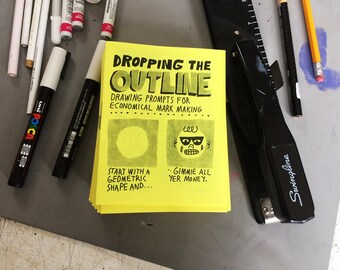 DROPPING THE
OUTLINE
DRAWING PROMPTS FOR
ECONOMICAL MARK MAKING
START WITH A
GEOMETRIC
SHAPE AND...
- GIMMIE ALL
YER MONEY.
POSCA
Swingline